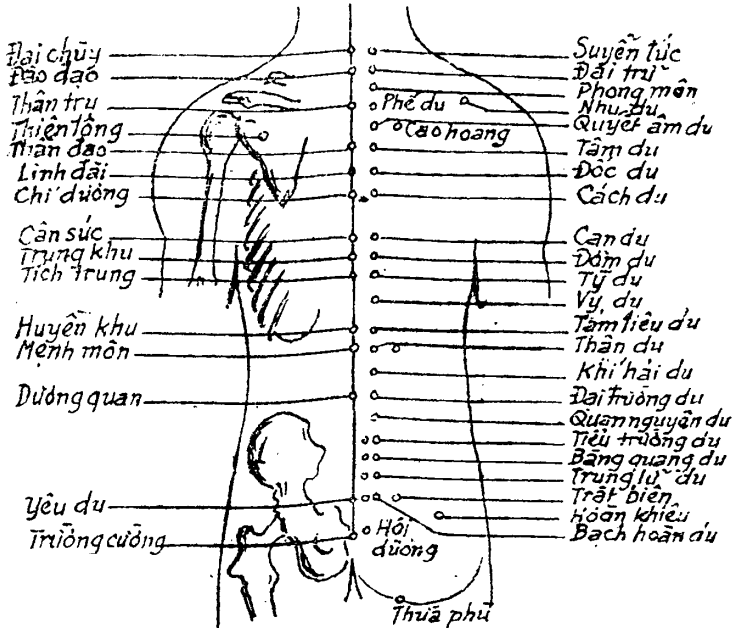 Đại chùy
Đào đạo
Thân trụ
Thiên tông
Thần đạo
Linh đài
Chí dương
Cân súc
Trung khu
Tích trung
Huyền khu
Mệnh môn
Dương quan
Yêu du
Trường cường
Phế du
Cao hoang
Hội
dương
Thừa phù
Suyễn tức
Đại trữ
Phong môn
Nhu du
Quyết âm du
Tâm du
Đốc du
Cách du
Can du
Đởm du
Tỳ du
Vỵ du
Tam tiêu du
Thận du
Khí hải du
Đại trường du
Quan nguyên du
Tiểu trường du
Bàng quang du
Trung lữ du
Trật biên
Hoàn khiêu
Bạch hoàn du